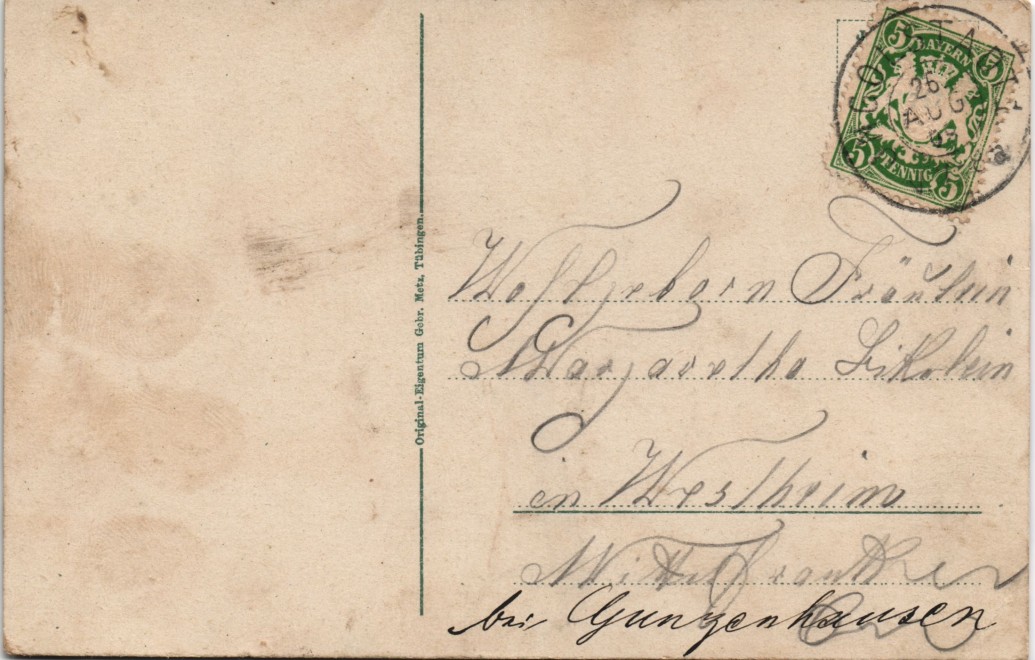 INGOLSTADT
26
AUG
BAYERN
5 5
PFENNIG
5 5
Original-Eigentum Gebr. Metz, Tübingen.
Wohlgeborn Fräulein
Margaretha
in Westheim
Mittelfranken
bei Gunzenhausen